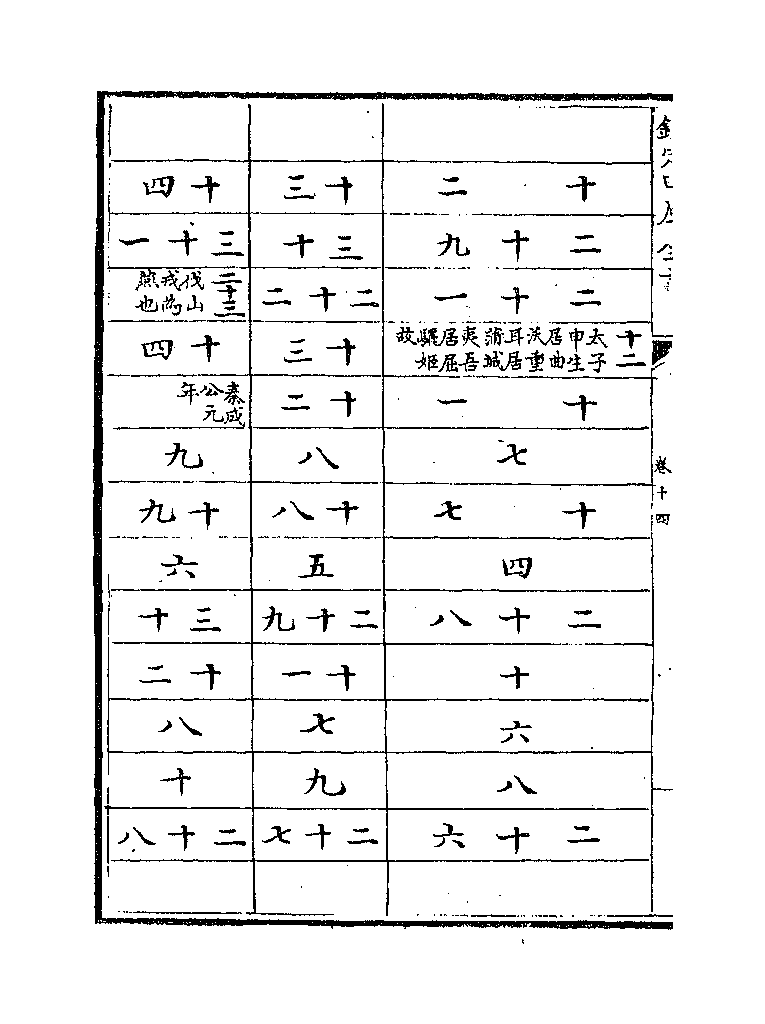 欽定四庫全書
卷十四
十二
二十九
二十一
十二 太子申生居曲沃重耳居蒲城夷吾居屈驪姬故
十一
七
十七
四
二十八
十
六
八
二十六
十三
三十
二十二
十三
十二
八
十八
五
二十九
十一
七
九
二十七
十四
三十一
二十三 伐山戎為燕也
十四
秦成公元年
九
十九
六
三十
十二
八
十
二十八